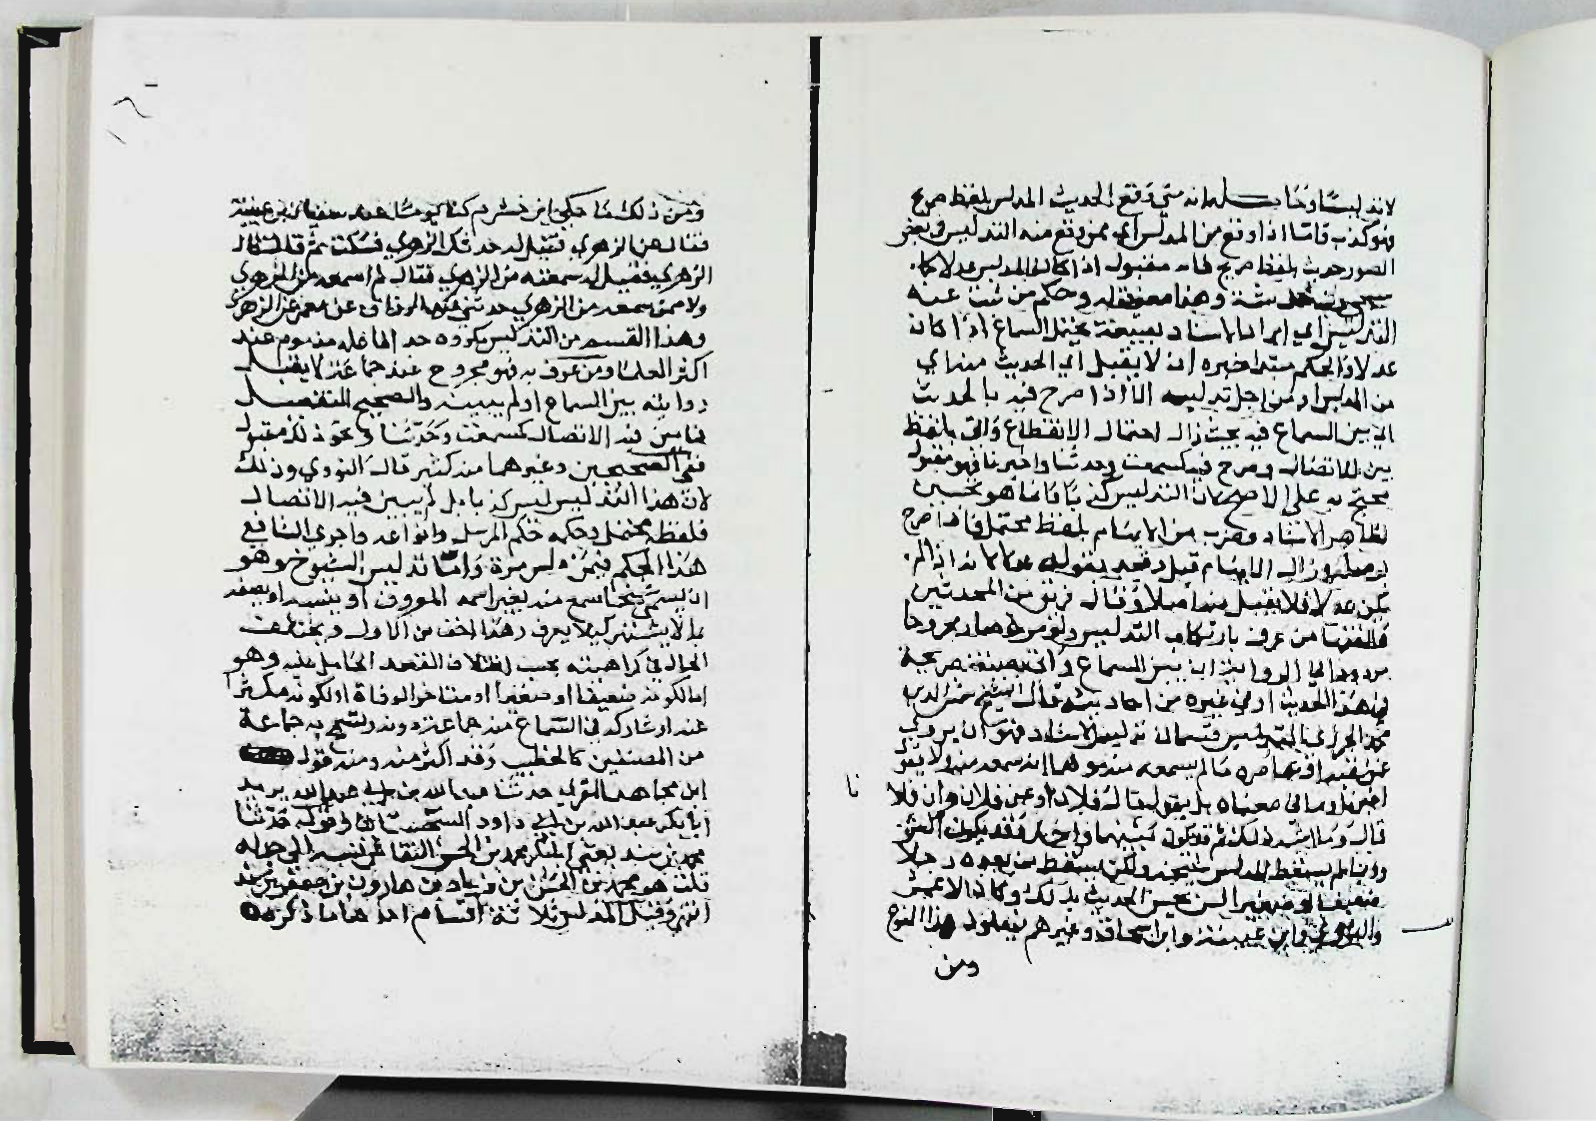 لا تدليسا وحاصله انه متي وقع الحديث المدلس بلفظ صريح
فهو كذب فاما اذا وقع من المدلس اي ممن وقع منه التدليس في بعض
الصور حديث بلفظ صريح فانه مقبول اذا كان المدلس عدلا كما
وهذا وحكم من ثبت عنه
التدليس اي ايراد الاسناد بصيغة تحتمل السماع اذا كان
عدلا والحكم مبتدا خبره ان لا يقبل اي الحديث من اي
من المدلس او من اجل تدليسه الا اذا صرح فيه بالحديث
اي بين السماع فيه بحيث زال احتمال الانقطاع واتى بلفظ
بين للاتصال وصرح فيه كسمعت وحدثنا واخبرنا فهو مقبول
محتج به علي الاصح لان التدليس ليس كذبا فانما هو تحسين
لظاهر الاسناد وضرب من الايهام بلفظ محتمل فاذا صرح
وزال الايهام قبل وقيد بقوله عدلا لانه اذا لم
يكن عدلا فلا يقبل منه اصلا وقال فريق من المحدثين
والفقها من عرف بارتكاب التدليس ولو مرة صار مجروحا
مردود الرواية وان بين السماع واتى بصيغة صريحة
في هذا الحديث او في غيره من احاديثه قال الشيخ شمس الدين
محمد الجزري التدليس قسمان تدليس الاسناد فهو ان يروي
عمن لقيه او عاصره ما لم يسمعه منه موهما انه سمعه منه ولا يقول
اخبرنا وما في معناه بل يقول قال فلان او عن فلان وان فلانا
قال وما اشبه ذلك ثم قد يكون بينهما واحد وقد يكون اكثر
وربما لم يسقط المدلس شيخه ولكن يسقط من بعده رجلا
ضعيفا او صغير السن يحسن الحديث بذلك وكان الاعمش
والثوري وابن عيينة وابن اسحاق وغيرهم يفعلون هذا النوع
ومن
نا
ومن ذلك ما حكي ابن خشرم كنا يوما عند سفيان بن عيينة
فقال عن الزهري فقيل له حدثك الزهري فسكت ثم قال قال
الزهري فقيل له سمعته من الزهري فقال لم اسمعه من الزهري
ولا ممن سمعه من الزهري حدثني عبد الرزاق عن معمر عن الزهري
وهذا القسم من التدليس مكروه جدا فاعله مذموم عند
اكثر العلماء ومن عرف به فهو مجروح عند جماعة لا يقبل
روايته بين السماع او لم يبينه والصحيح التفصيل
فما بين فيه الاتصال كسمعت وحدثنا ونحو ذلك مقبول
ففي الصحيحين وغيرهما منه كثير قال النووي وذلك
لان هذا التدليس ليس كذبا بل لم يبين فيه الاتصال
فلفظه محتمل وحكمه حكم المرسل وانواعه واجري الشافعي
هذا الحكم فيمن دلس مرة واما تدليس الشيوخ وهو
ان يسمي شيخا سمع منه بغير اسمه المعروف او ينسبه او يصفه
بما لا يشتهر كيلا يعرف وهذا اخف من الاول وتختلف
الحال في كراهيته بحسب اختلاف القصد الحامل عليه وهو
اما لكونه ضعيفا او صغيرا او متاخر الوفاة او لكونه مكثرا
عنه او شاركه في السماع منه جماعة دونه وتسمح به جماعة
من المصنفين كالخطيب وقد اكثر منه ومنه قول
ابن مجاهد المقري حدثنا عبد الله بن ابي عبد الله يريد
ابا بكر عبد الله بن ابي داود السجستاني وقوله حدثنا
محمد بن سند يعني ابا بكر محمد بن الحسن النقاش نسبه الي جد له
قلت هو محمد بن الحسن بن زياد بن هارون بن جعفر بن سند
انتهى وقيل المدلس ثلاثة اقسام احدها ما ذكره